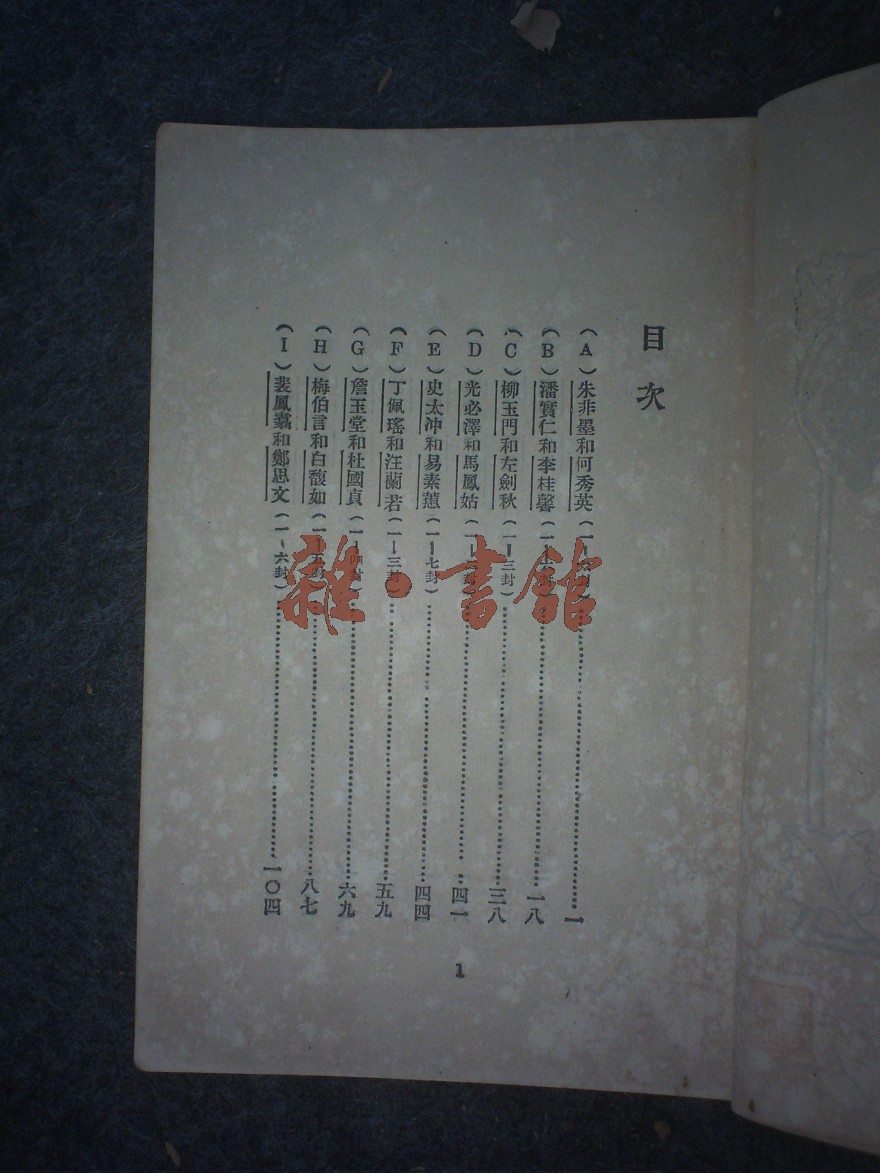 目次
（A）朱非墨和何秀英（一
一
（B）潘實仁和李桂馨（一
一八
（C）柳玉門和左劍秋（一—三封）
三八
（D）光必澤和馬鳳姑（一—封）
四一
（E）史太冲和易素蕙（一—七封）
四四
（F）丁佩瑤和汪蘭若（一—三封）
五九
（G）詹玉堂和杜國貞（一—四封）
六九
（H）梅伯言和白馥如（一—封）
八七
（I）裴鳳翥和鄭思文（一—六封）
一〇四
1
雜·書館